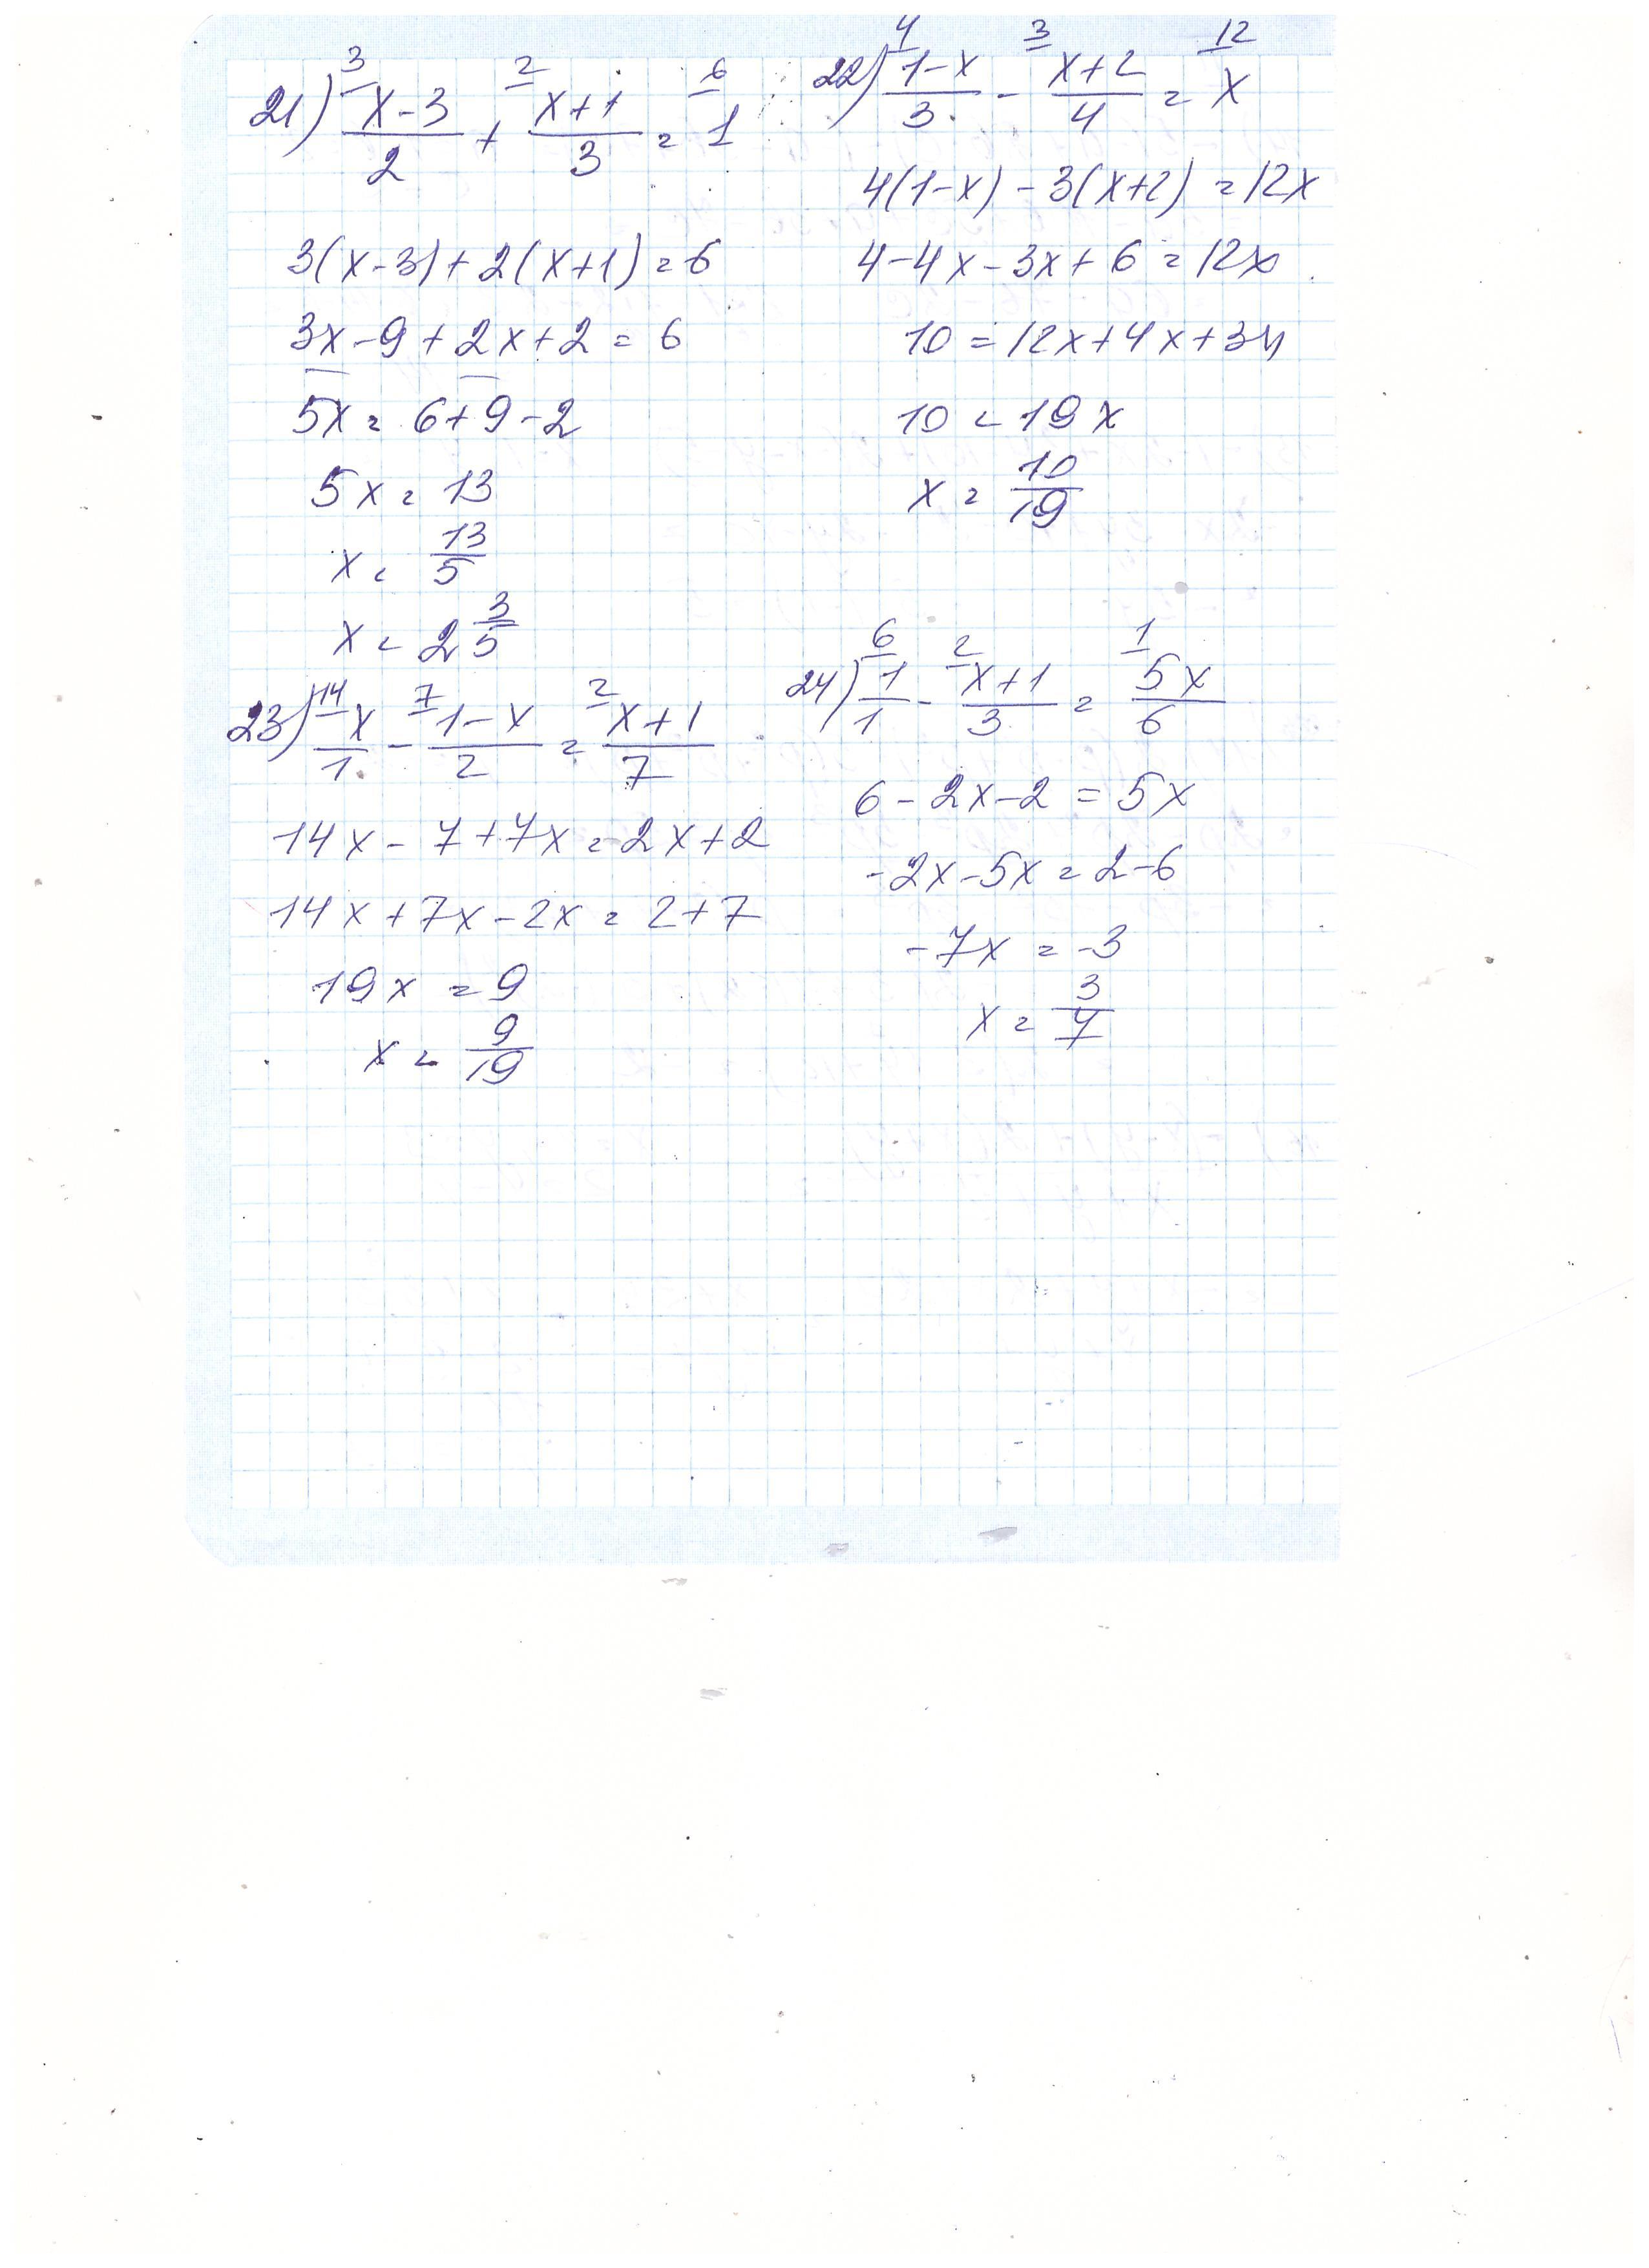 21) ³x-3/2 + ²x+1/3 = ⁶1
3(x-3)+2(x+1)=6
3x-9+2x+2=6
5x=6+9-2
5x=13
x=13/5
x=2 3/5
22) ⁴1-x/3 - ³x+2/4 = ¹²x
4(1-x)-3(x+2)=12x
4-4x-3x+6=12x
10=12x+4x+3x
10=19x
x=10/19
23) ¹⁴x/1 - ⁷1-x/2 = ²x+1/7
14x-7+7x=2x+2
14x+7x-2x=2+7
19x=9
x=9/19
24) ⁶1/1 - ²x+1/3 = ¹5x/6
6-2x-2=5x
-2x-5x=2-6
-7x=-3
x=3/7